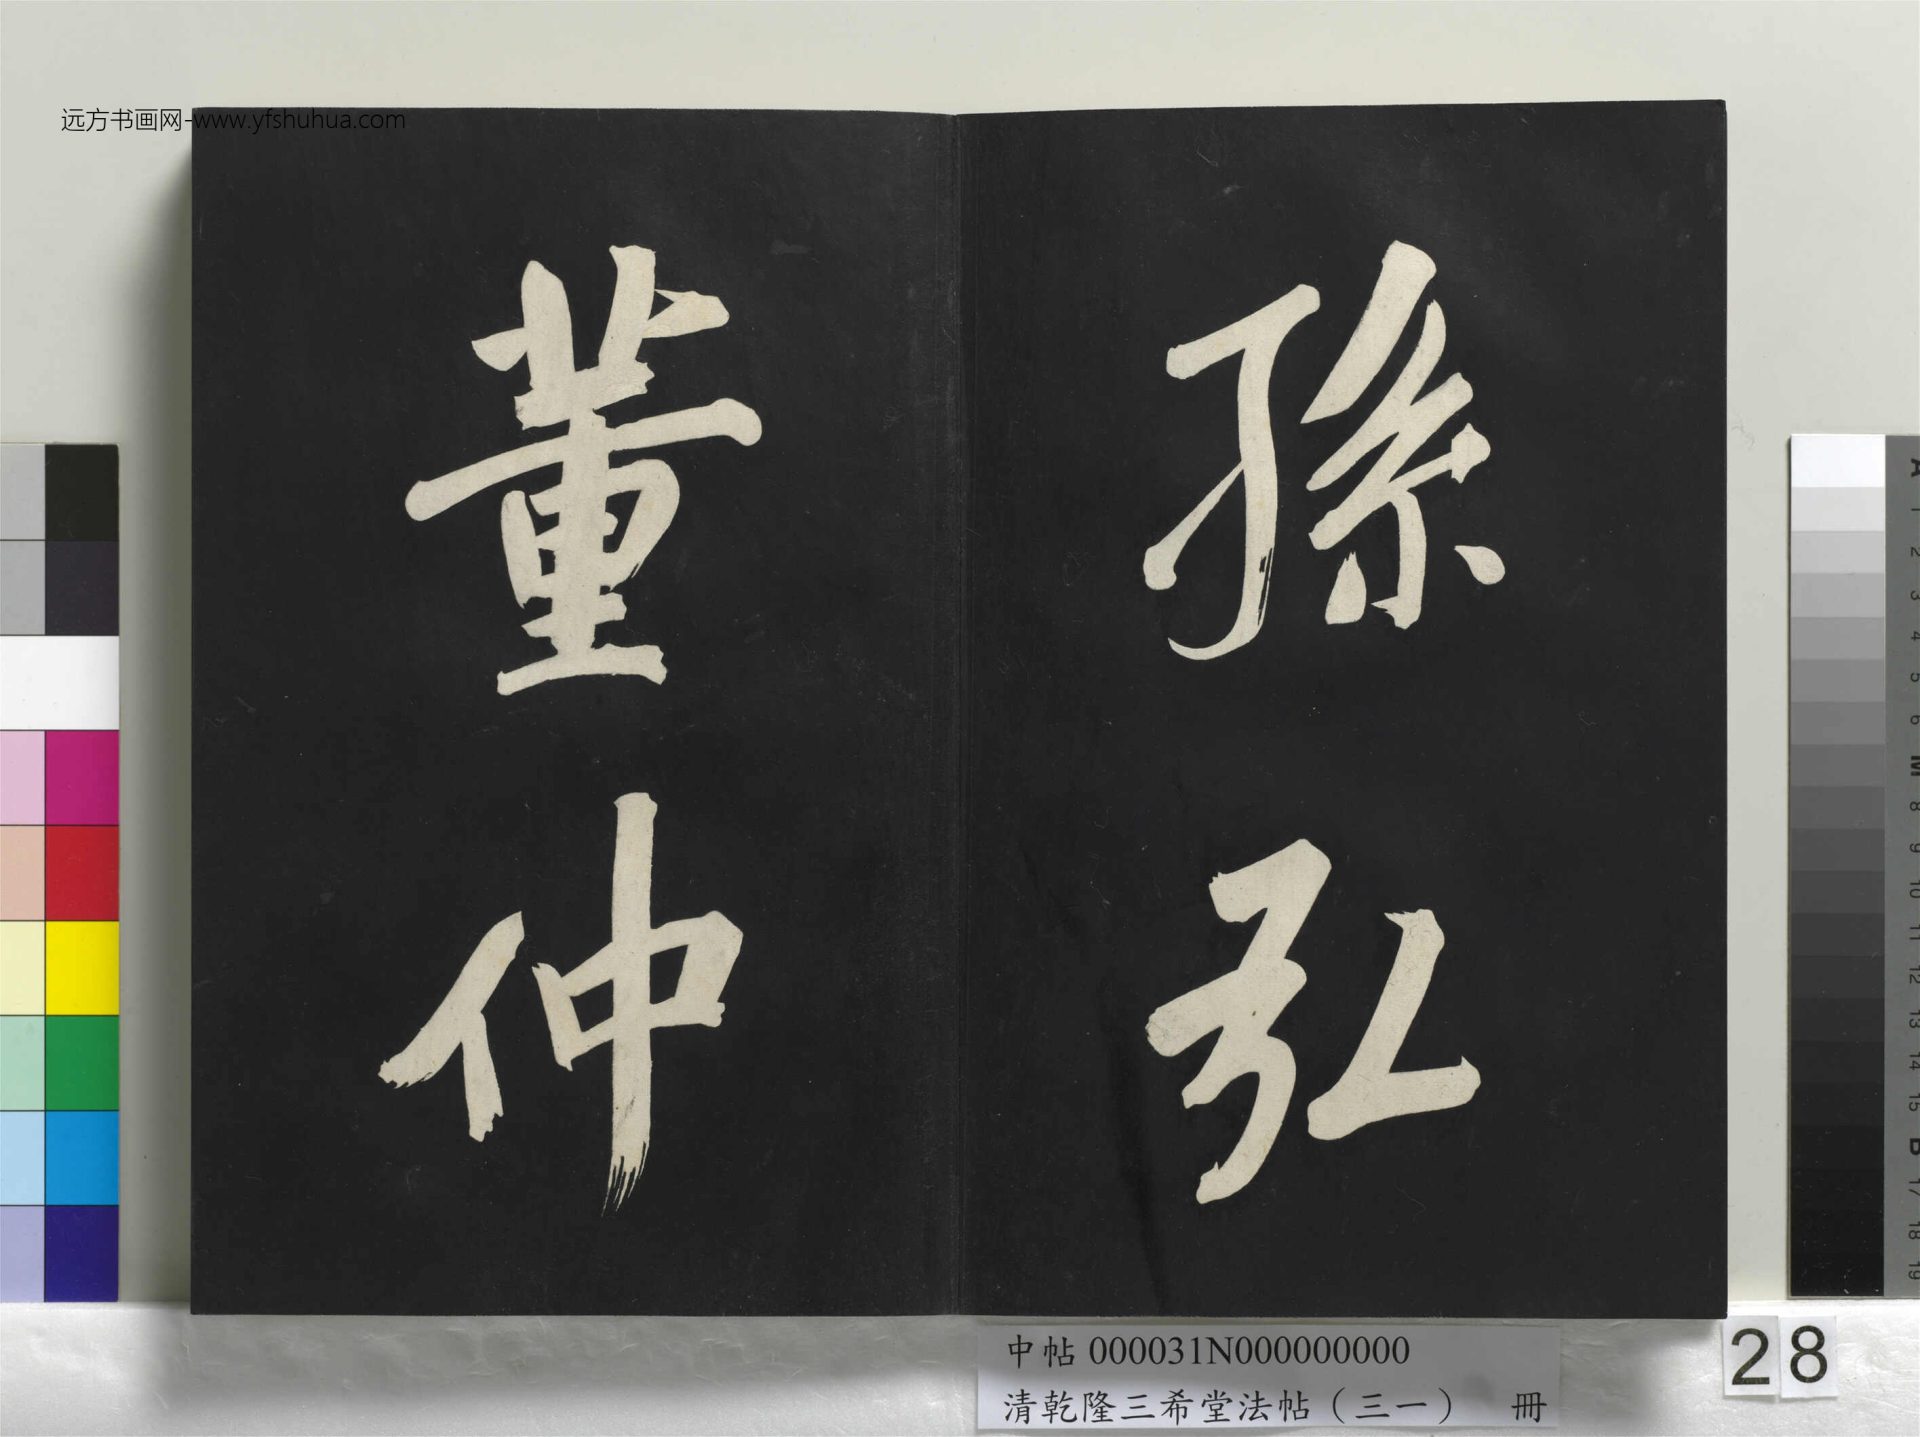 远方书画网-www.yfshuhua.com
孫弘
董仲
中帖 000031N000000000
清乾隆三希堂法帖（三一） 冊
28
A 1 2 3 4 5 6 M 8 9 10 11 12 13 14 15 B 17 18 19